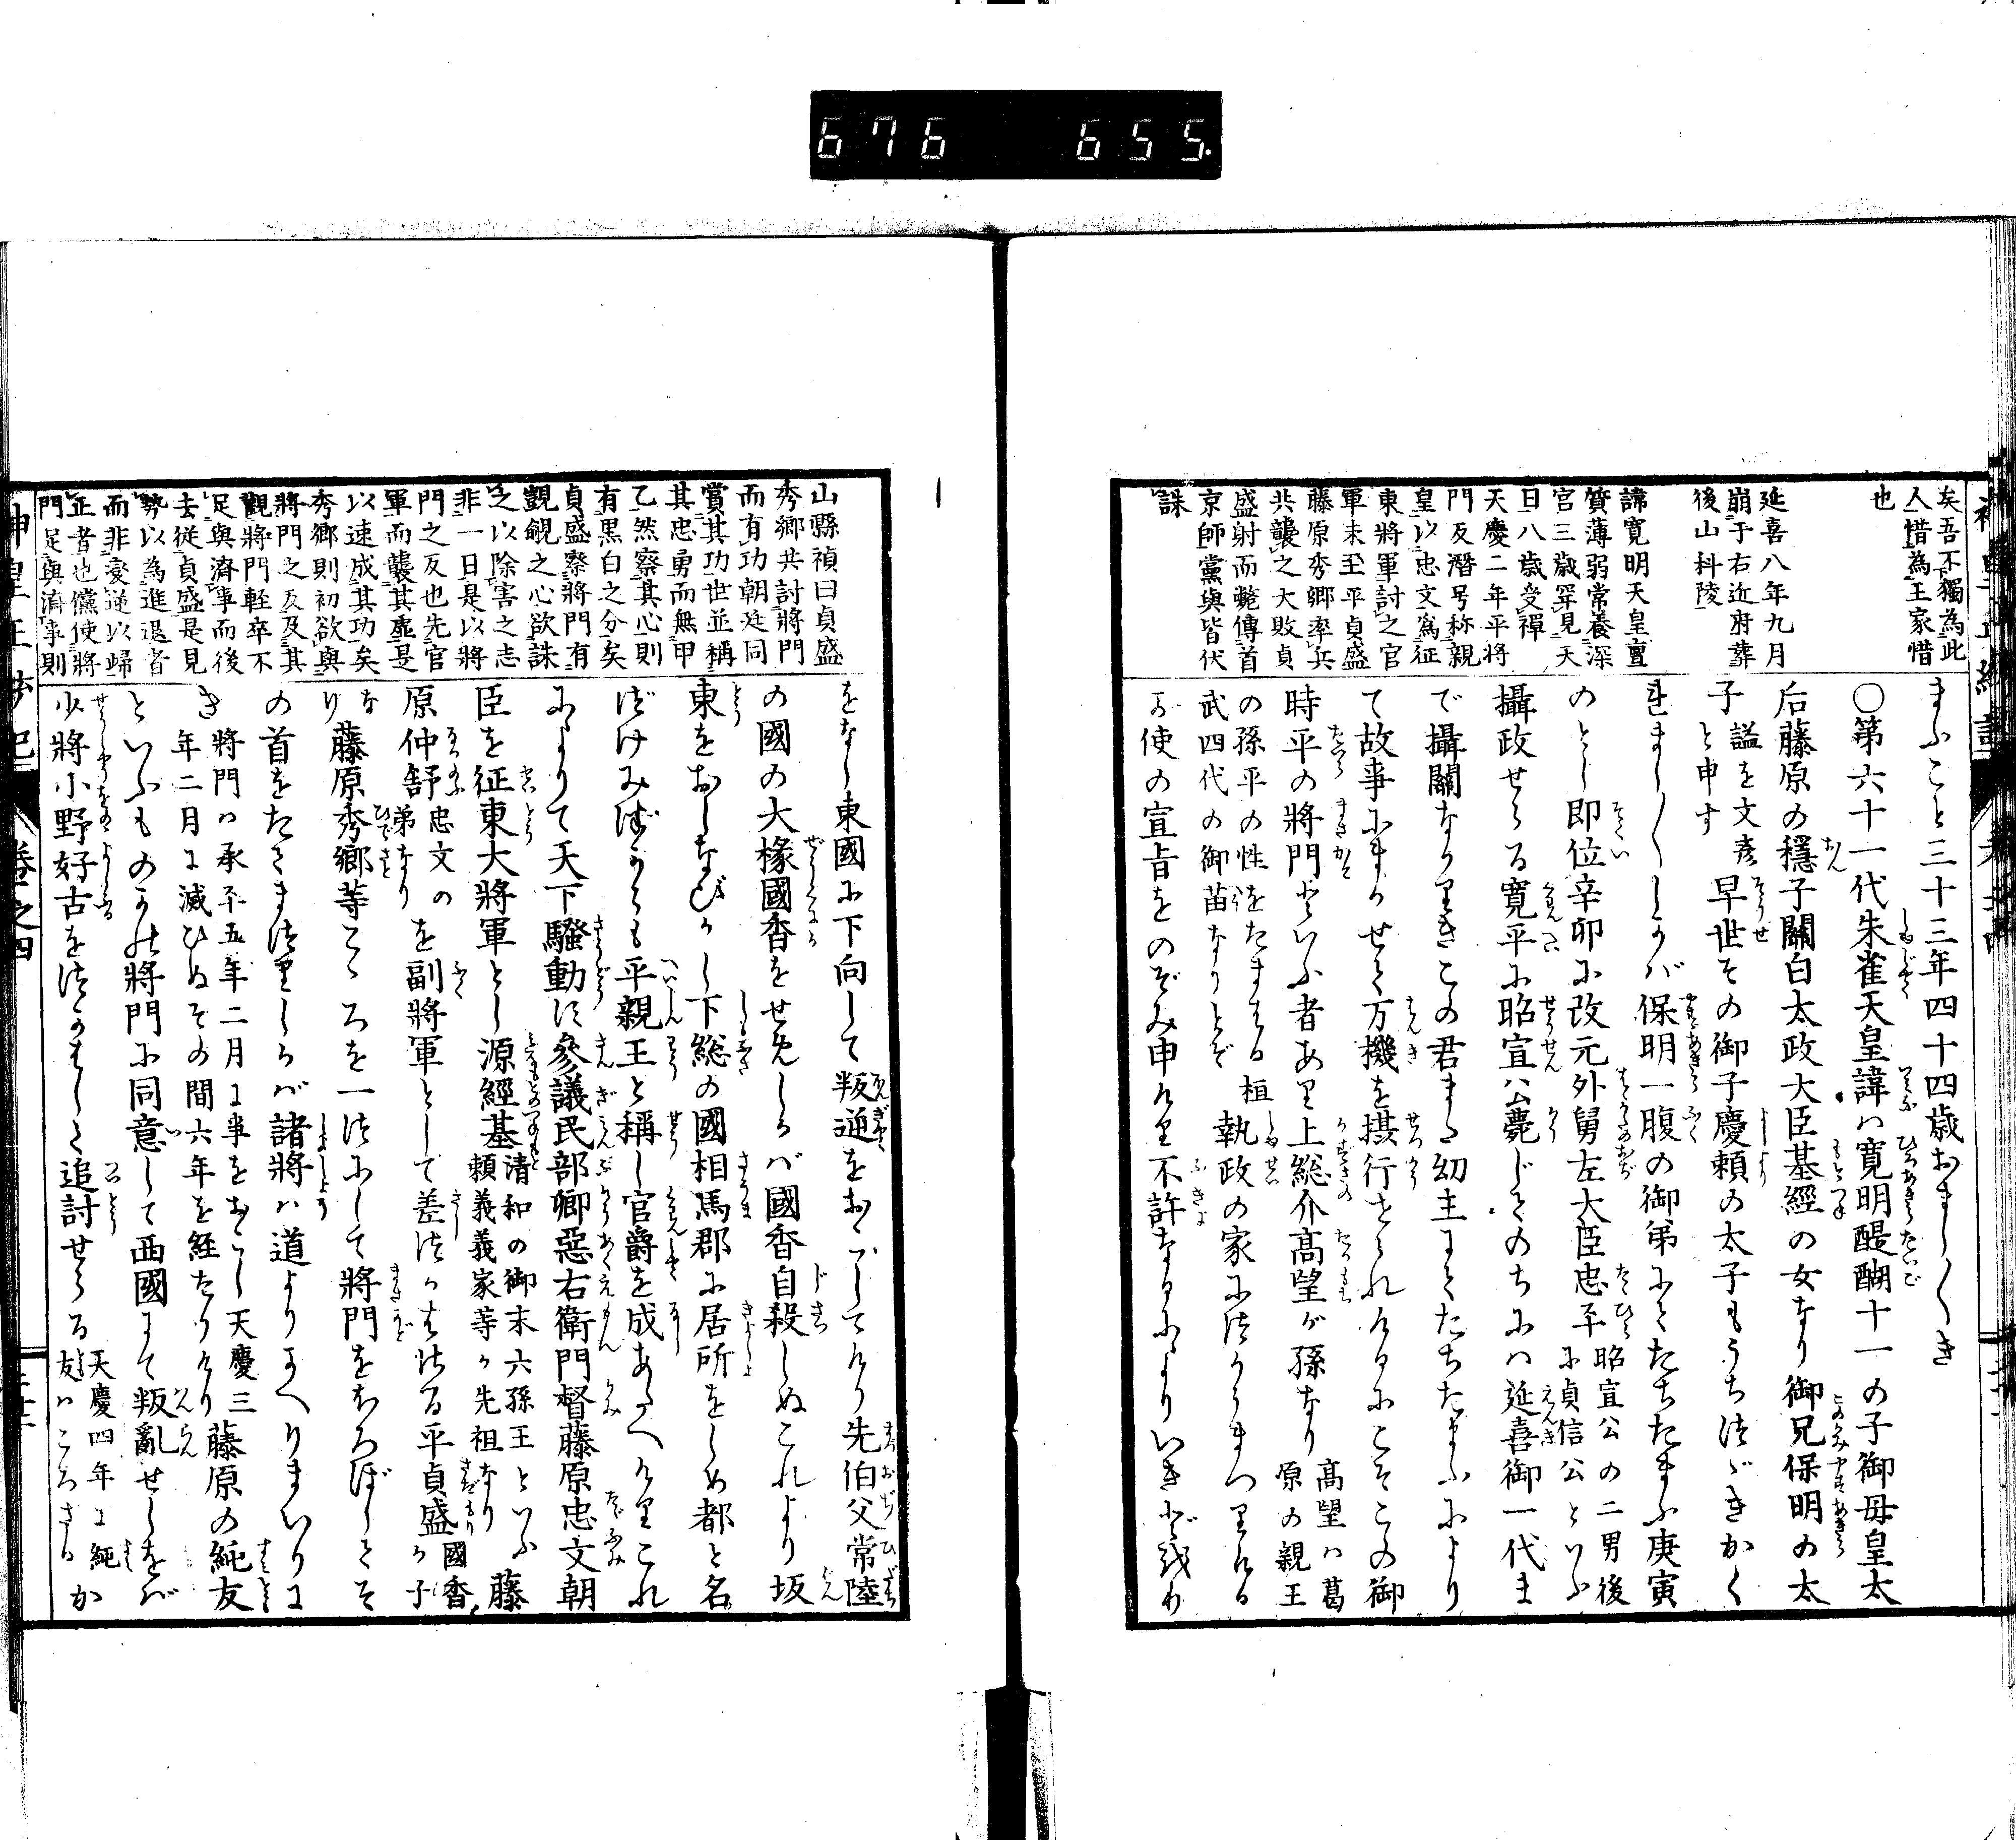 676 655.
矣吾不獨為此
人惜為王家惜
也
延喜八年九月
崩于右近府葬
後山科陵
諦寛明天皇亶
質薄弱常養深
宮三歳罕見天
日八歳受禪
天慶二年平將
門反潛号称親
皇以忠文為征
東將軍討之官
軍未至平貞盛
藤原秀郷率兵
共襲之大敗貞
盛射而斃傳首
京師黨與皆伏
誅
まふこと三十三年四十四歳おまし〱き
〇第六十一代朱雀天皇諱ハ寛明醍醐十一の子御母皇太
后藤原の穩子關白太政大臣基經の女なり御兄保明の太
子 謚を文彦と申す 早世その御子慶頼の太子もうちつゞきかく
れまし〱しかバ保明一腹の御弟にてたちたまふ庚寅
のとし即位辛卯に改元外舅左大臣忠平 昭宣公の二男後に貞信公といふ
攝政せらる寛平に昭宣公薨じてのちにハ延喜御一代ま
で攝關なかりきこの君また幼主にてたちたまふにより
て故事にまかせて万機を摂行せられけるにこそこの御
時平の將門といふ者あり上総介高望が孫なり 高望ハ葛原の親王
の孫平の性をたまはる桓武四代の御苗なりとぞ 執政の家につかうまつりける
が使の宣旨をのぞみ申けり不許なるによりいきどほり
をなし東國に下向して叛逆をおこしてけり先伯父常陸
の國の大掾國香をせめしかバ國香自殺しぬこれより坂
東をおしなびかし下総の國相馬郡に居所をしめ都と名
づけみづからも平親王と稱し官爵を成あたへけりこれ
によりて天下騷動に參議民部卿惡右衛門督藤原忠文朝
臣を征東大將軍とし源經基 清和の御末六孫王といふ頼義義家等か先祖なり 藤
原仲舒 忠文の弟なり を副將軍として差つかはさる平貞盛 國香か子
なり 藤原秀郷等こゝろを一つにして將門をほろぼしてそ
の首をたてまつりしかバ諸將ハ道よりかへりまいりに
き 將門ハ承平五年二月に事をおこし天慶三年二月に滅ひぬその間六年を経たりけり 藤原の純友
といふものかの將門に同意して西國にて叛亂せしをば
少將小野好古をつかはして追討せらる 天慶四年に純友ハころさる か
山縣禎曰貞盛
秀郷共討將門
而有功朝廷同
賞其功世並稱
其忠勇而無甲
乙然察其心則
有黒白之分矣
貞盛察將門有
覬覦之心欲誅
之以除害之志
非一日是以將
門之反也先官
軍而襲其虚是
以速成其功矣
秀郷則初欲與
將門之反及其
觀將門軽卒不
足與濟事而後
去従貞盛是見
勢以為進退者
而非変逆以歸
正者也儻使將
門足與濟事則
神皇正
巻之四